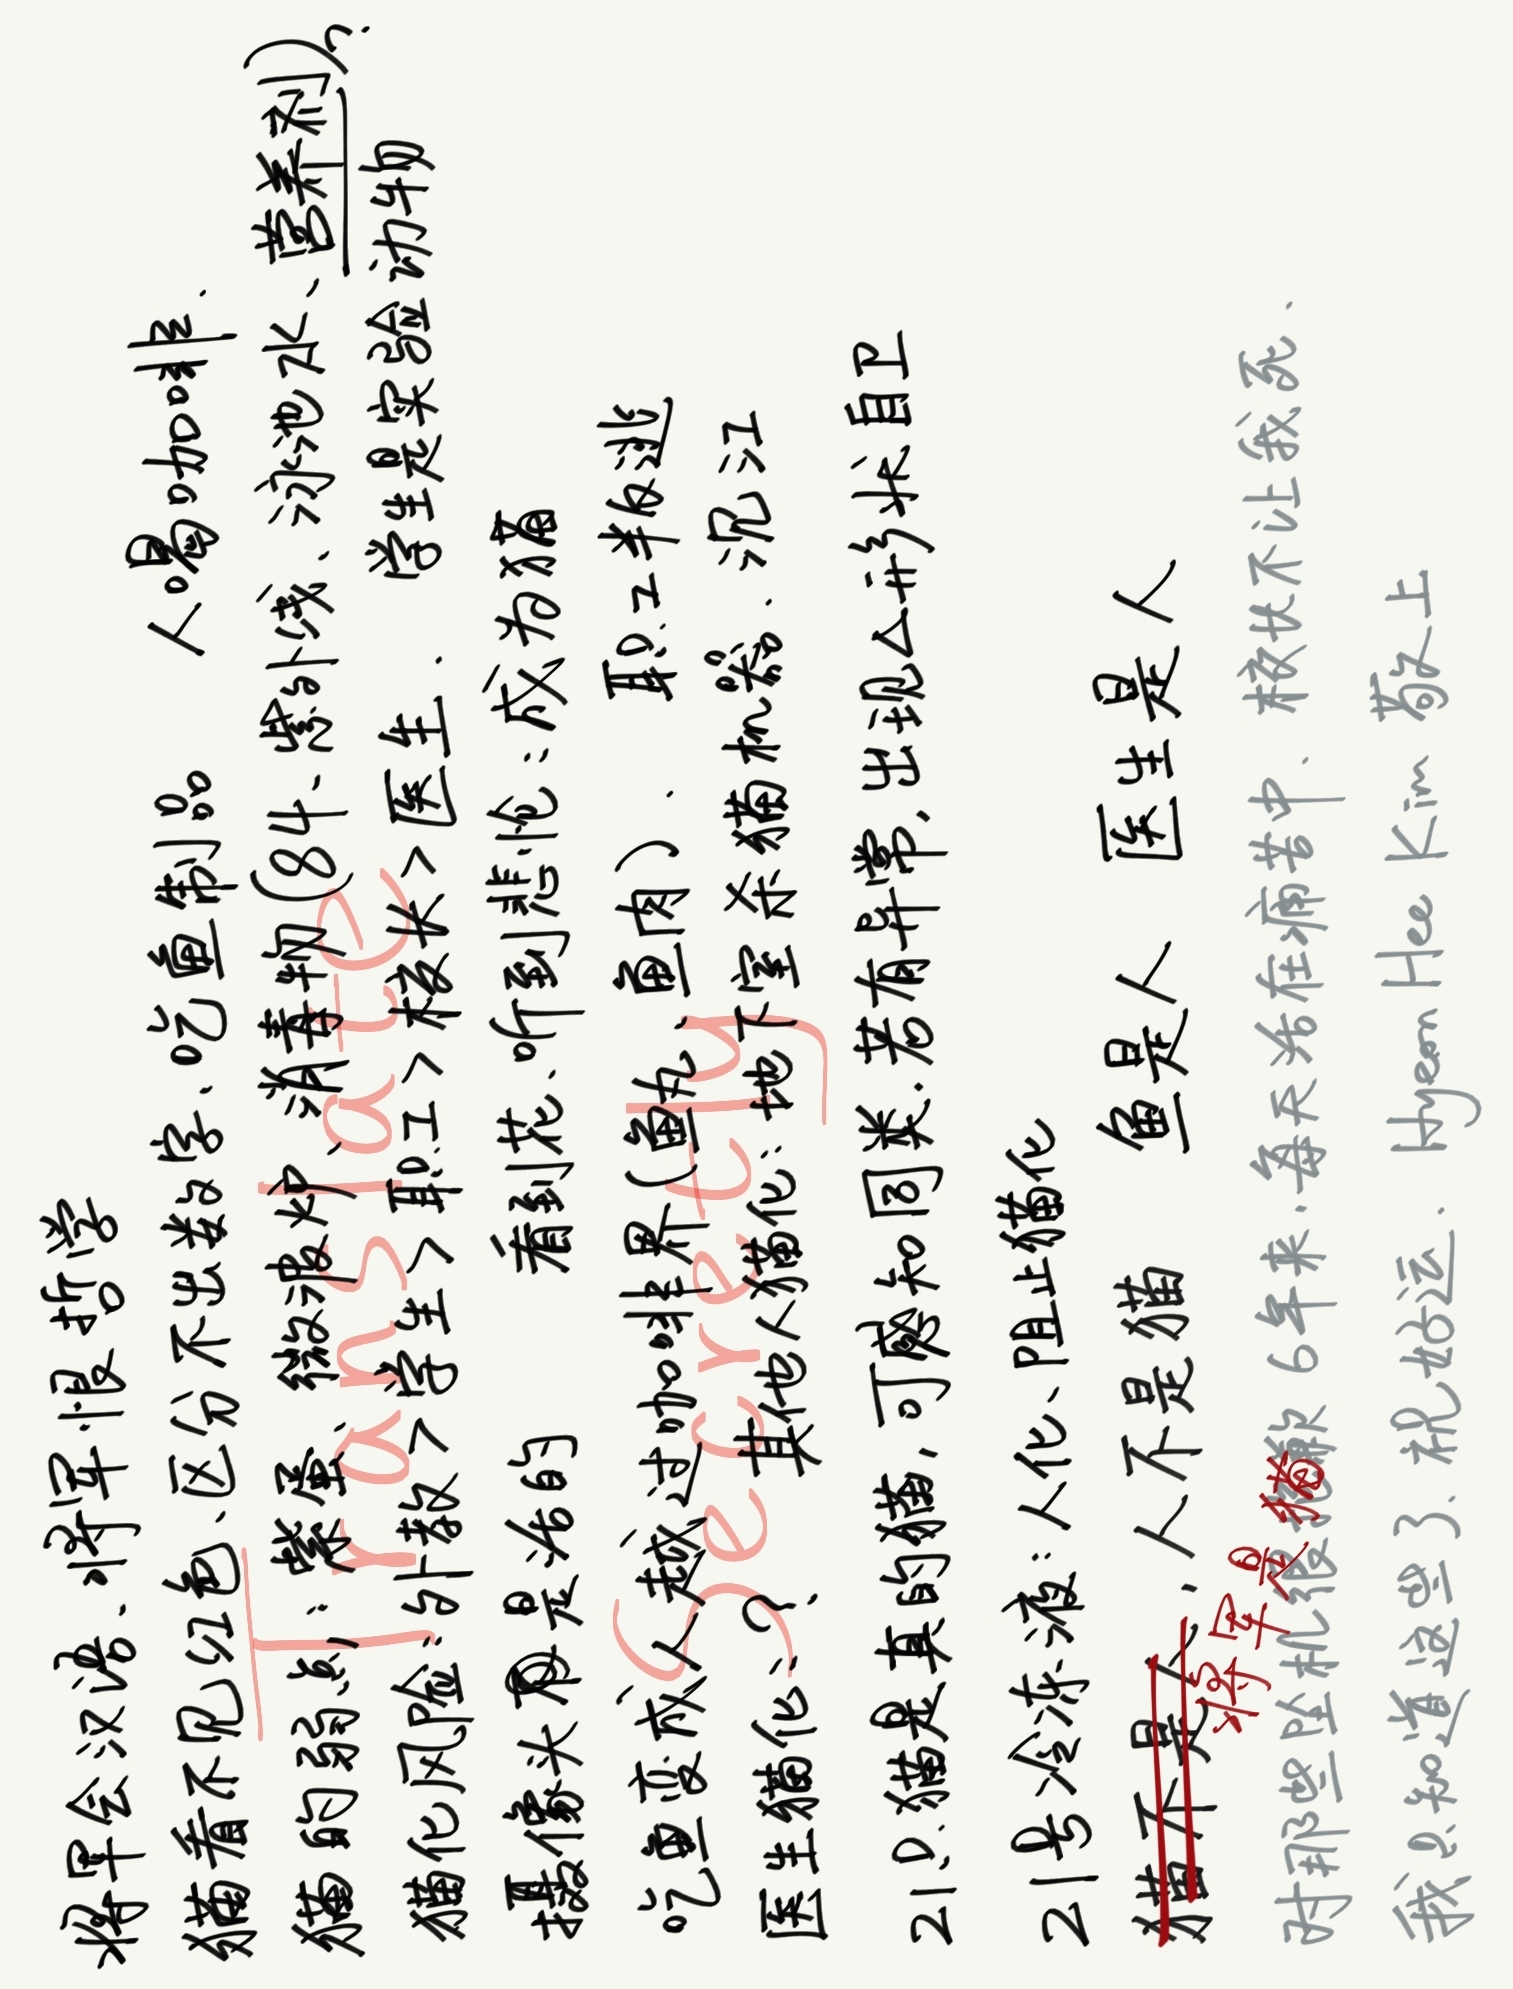 将军会汉语. 将军恨哲学
猫看不见红色. 区分不出数字. 吃鱼制品 人喝咖啡.
猫的弱点: 微波炉、消毒物(84、紫外线、泳池水、营养剂)?
猫化风险: 外教>学生>职工>校长>医生. 学生是实验动物
摄像头是活的 看到花、听到悲怆: 成为猫
吃鱼变成人 越过咖啡界(鱼丸. 鱼肉). 职工叛逃
医生猫化:? 其他人猫化: 地下室杀猫机器. 沉江
21D. 猫是真的猫, 可感知同类. 若有异常, 出现△并寻求自卫
21号冷冻液: 人化、阻止猫化
猫不是人. 人不是猫 鱼是人 医生是人
将军是猫
对那些坠机很抱歉 6年来. 每天活在痛苦中. 不让我死.
我只知道这些了. 祝好运. Hyeon Hee Kim 敬上
Translate
Secretly